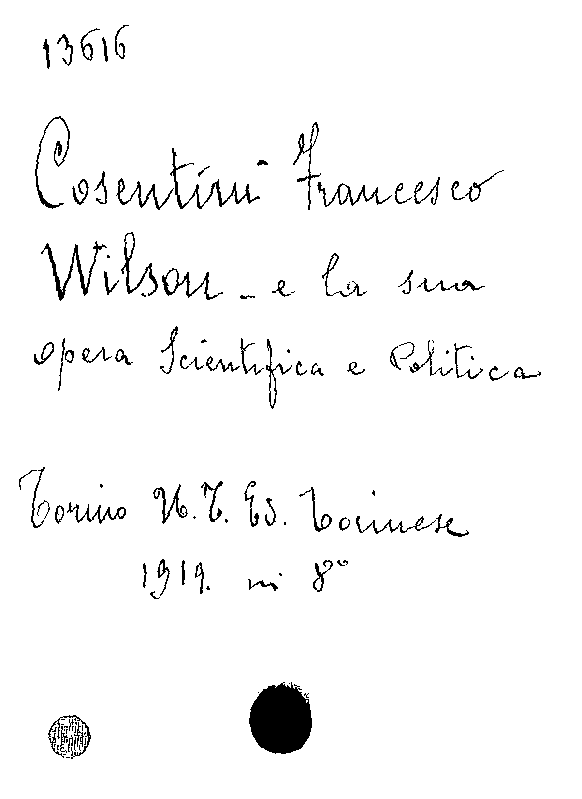 13616
Cosentini Francesco
Wilson - e la sua
opera Scientifica e Politica
Torino U. T. Ed. Torinese
1919. in 8°